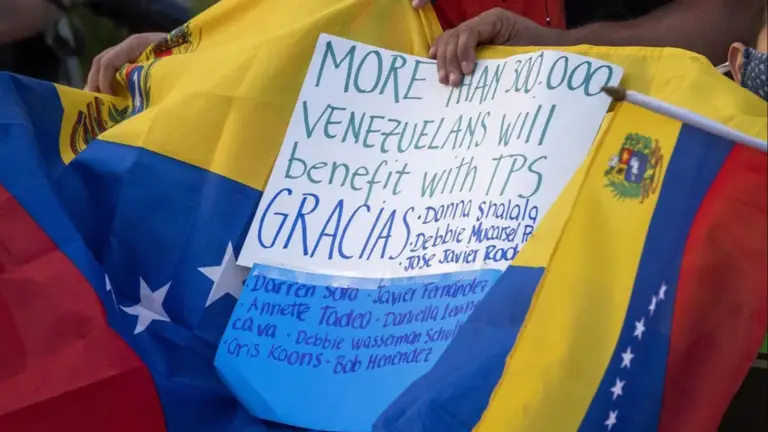 MORE THAN 300.000
VENEZUELANS WILL
benefit with TPS
GRACIAS
· Donna Shalala
· Debbie Mucarsel
· Jose Javier
Darren Soto · Javier Fernández
· Annette Tadeo · Daniella
cava · Debbie Wasserman
· Cris Koons · Bob Menéndez